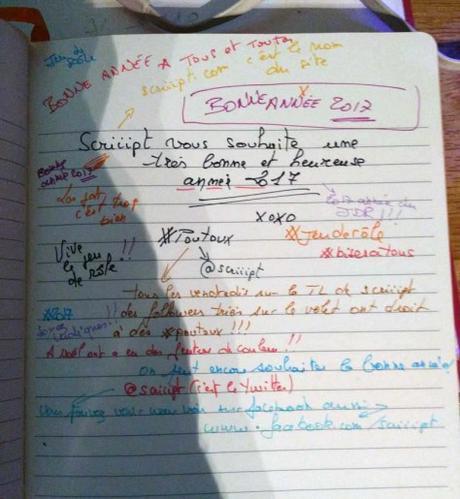 Jeu de rôle
BONNE ANNÉE A TOUS et Toutes
scriiipt.com c'est le nom
du site
BONNE ANNÉE 2017
Scriiipt vous souhaite une
très bonne et heureuse
année 2017
BONNE
ANNÉE 2017
c'est trop
bien
XOXO
#Poutoux
#Jeuderôle
@scriiipt
#bisesatous
Vive
le jeu
de rôle !!
tous les vendredis sur la TL de scriiipt
#2017
!! des followers triés sur le volet ont droit
à des #poutoux !!!
a eu des feutres de couleur !!
on peut encore souhaiter la bonne année
@scriiipt (c'est le twitter)
Vous pouvez venir nous voir sur facebook aussi
www.facebook.com/scriiipt